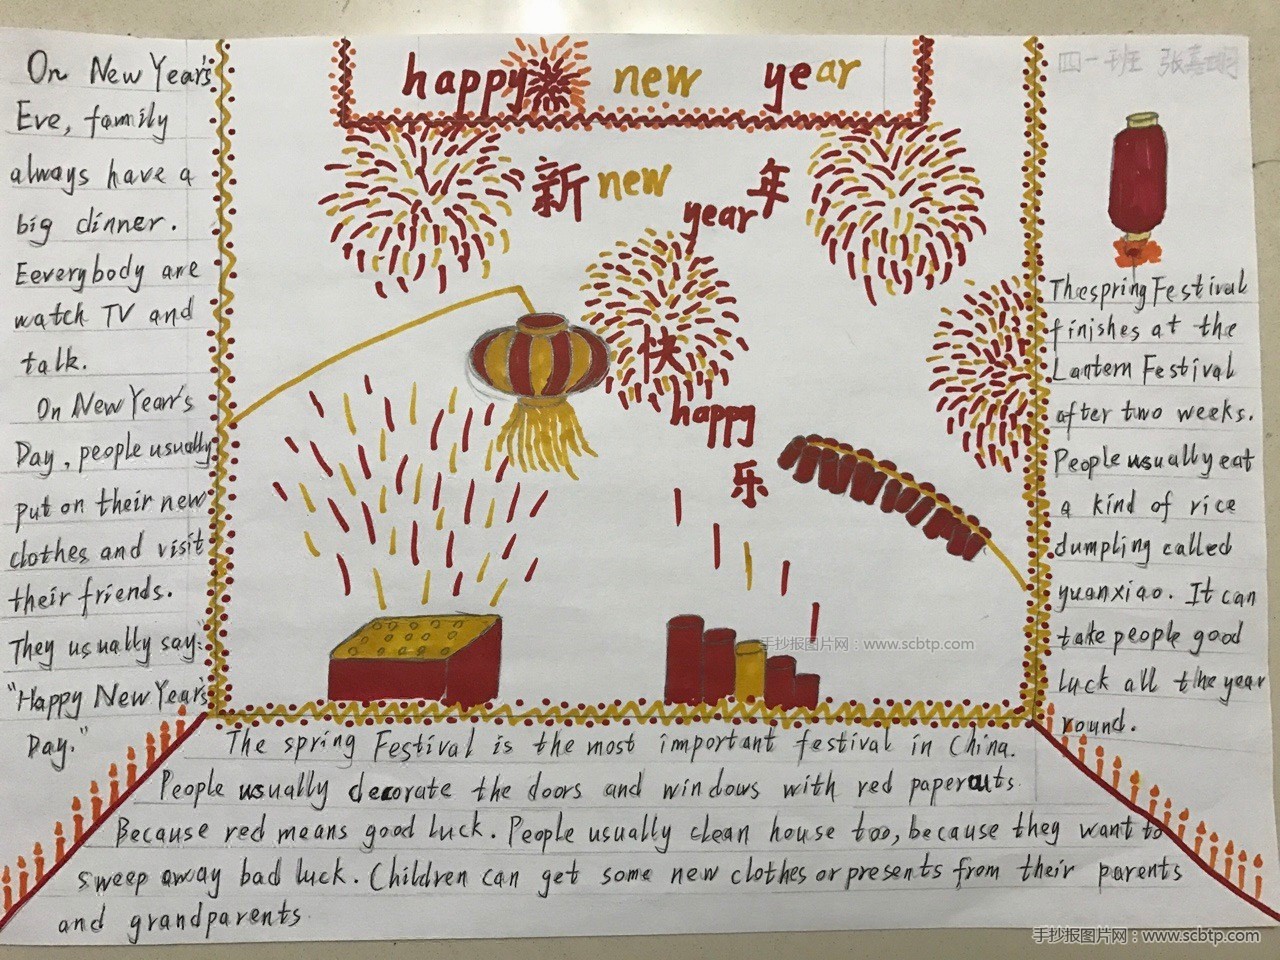 happy new year
四一班
新 new 年
year
快
happy
乐
On New Year's
Eve, family
always have a
big dinner.
Eeverybody are
watch TV and
talk.
On New Year's
Day, people usually
put on their new
clothes and visit
their friends.
They usually say:
"Happy New Year's
Day."
The spring Festival is the most important festival in China.
People usually decorate the doors and windows with red papercuts
Because red means good luck. People usually clean house too, because they want to
sweep away bad luck. Children can get some new clothes or presents from their parents
and grandparents
Thespring Festival
finishes at the
Lantern Festival
after two weeks.
People usually eat
a kind of rice
dumpling called
yuanxiao. It can
take people good
luck all the year
round.
手抄报图片网：www.scbtp.com
手抄报图片网：www.scbtp.com